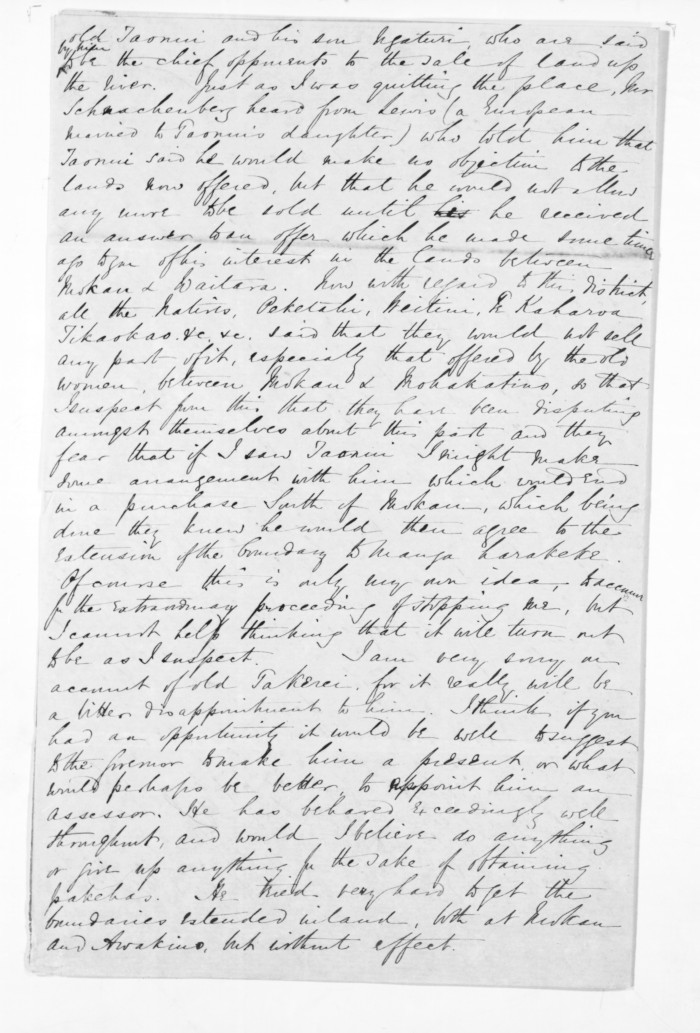 old Taonui and his son Ngaturi, who are said
by him
to be the chief opponents to the sale of land up
the river. Just as I was quitting the place, Mr
Schnachenberg heard from Lewis (a European
married to Taonui's daughter) who told him that
Taonui said he would make no objection to the
lands now offered, but that he would not allow
any more to be sold until his he received
an answer to an offer which he made some time
ago to you of his interest in the lands between
Mokau & Waitara. Now with regard to this district,
all the Natives, Peketahi, Weitini, Te Kaharoa
Tikaokao &c. &c. said that they would not sell
any part of it, especially that offered by the old
women, between Mokau & Mohakatino, so that
I suspect from this that they have been disputing
amongst themselves about this part and they
fear that if I saw Taonui I might make
some arrangement with him which would end
in a purchase South of Mokau, which being
done they knew he would then agree to the
extension of the boundary to Manga harakeke.
Of course this is only my own idea, to account
for the extraordinary proceeding of stopping me, but
I cannot help thinking that it will turn out
to be as I suspect. I am very sorry on
account of old Takerei, for it really will be
a bitter disappointment to him. I think if you
had an opportunity it would be well to suggest
to the Governor to make him a present or what
would perhaps be better, to appoint him an
assessor. He has behaved exceedingly well
throughout, and would I believe do anything
or give up anything for the sake of obtaining
pakehas. He tried very hard to get the
boundaries extended inland, both at Mokau
and Awakino, but without effect.